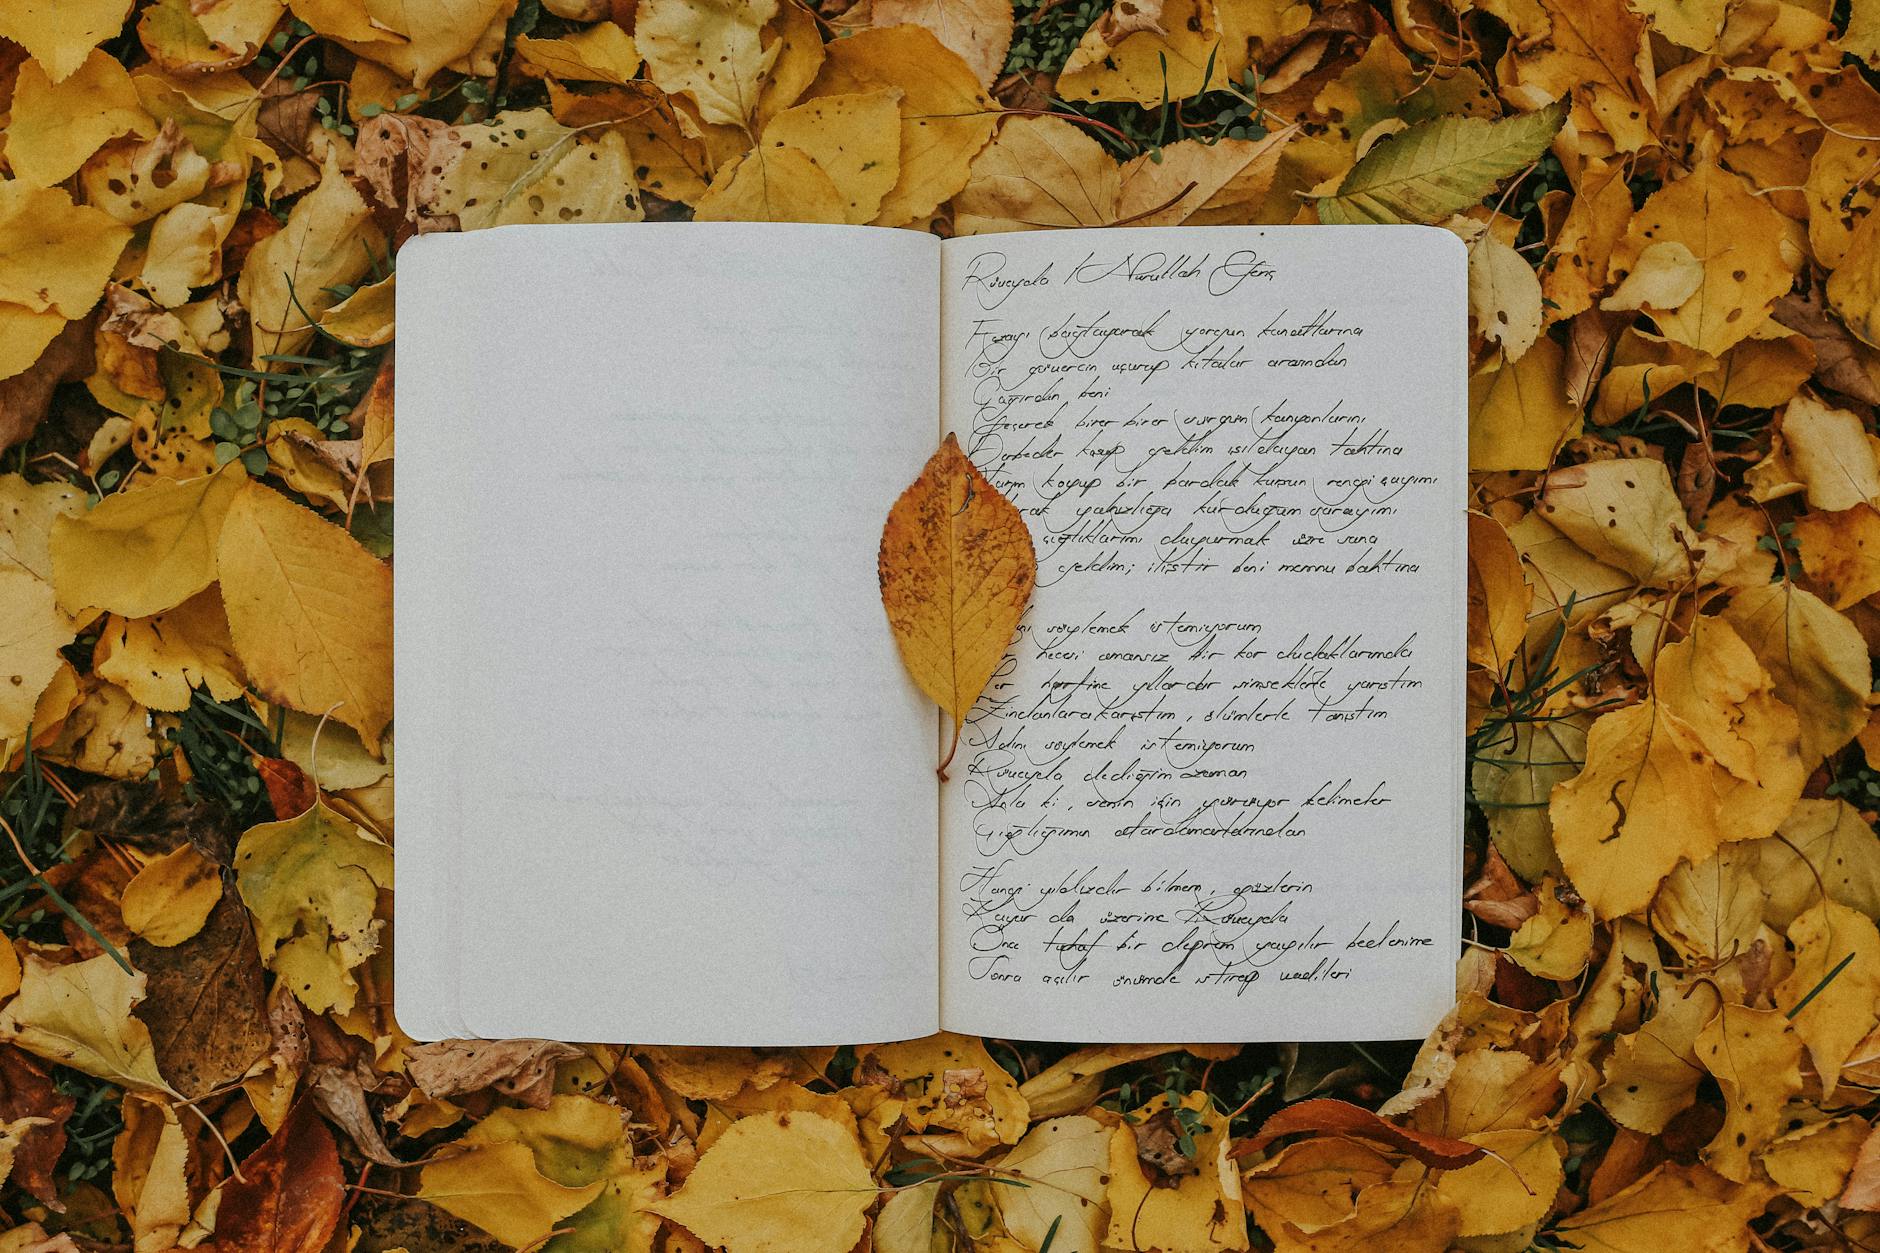 Rüveyda / Nurullah Genç
Fezayı bağlayarak yorgun kanatlarına
Bir güvercin uçurup kıtalar arasından
Çağırdın beni
Geçerek birer birer sürgün kanyonlarını
Derbeder koşup geldim ışıldayan tahtına
Yarım koyup bir bardak kurşun rengi çayımı
rak yalnızlığa kurduğum sarayımı
çığlıklarımı duyurmak üzre sana
geldim; iliştir beni memnu bahtına
söylemek istemiyorum
Her hecesi amansız bir kor dudaklarımda
Her harfine yıllardır şimşeklerle yarıştım
Zindanlara karıştım, ölümlerle tanıştım
Adını söylemek istemiyorum
Rüveyda dediğim zaman
Anla ki, senin için yürüyor kelimeler
Çığlığımın atardamarlarından
Hangi yıldızdır bilmem, gözlerin
Kayar da üzerine Rüveyda
Önce tuhaf bir deprem yayılır bedenime
Sonra açılır önümde ıstırap vadileri